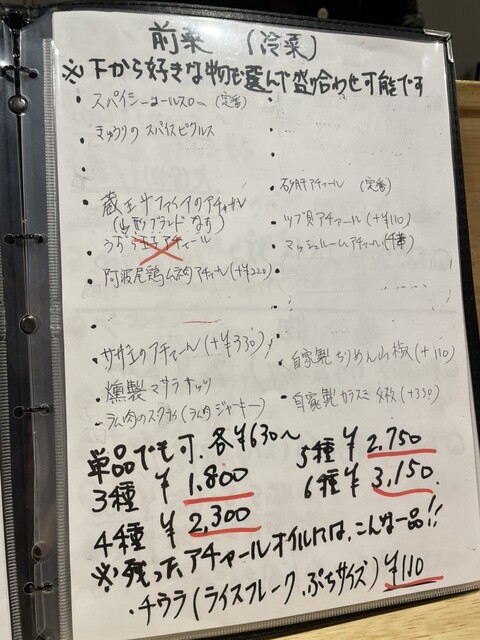 前菜 (冷菜)
※下から好きな物を選んで盛り合わせ可能です
・スパイシーコールスロー (定番)
・きゅうりのスパイスピクルス
・蔵王サファイアのアチャール
(山形ブランドなす)
・うずら玉子アチャール
・阿波尾鶏ムネ肉アチャール(+¥220)
・サザエのアチャール(+¥330)
・燻製マサラナッツ
・ラム肉のスクティ(ラム肉ジャーキー)
・砂肝アチャール (定番)
・ツブ貝アチャール(+¥110)
・マッシュルームアチャール
・自家製ちりめん山椒(+110)
・自家製カラスミ4枚(+330)
単品でも可、各¥630〜
3種 ¥1,800
4種 ¥2,300
5種 ¥2,750
6種 ¥3,150
※残ったアチャールオイルには、こんな一品!!
・チウラ(ライスフレーク、ぷちサイズ)¥110